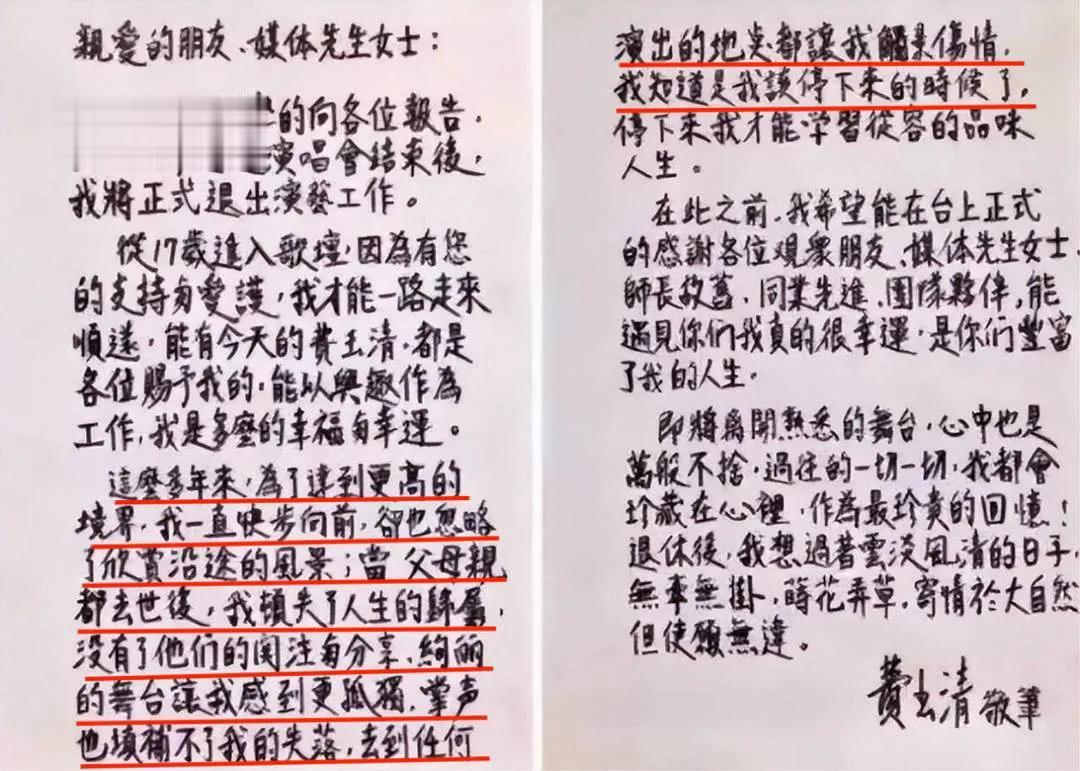 親愛的朋友、媒体先生女士：
的向各位報告，
演唱會結束後，
我將正式退出演藝工作。
從17歲進入歌壇，因為有您
的支持与愛護，我才能一路走來
順遂，能有今天的費玉清，都是
各位賜予我的，能以興趣作為
工作，我是多麼的幸福与幸運。
這麼多年來，為了達到更高的
境界，我一直快步向前，卻也忽略
了欣賞沿途的風景；當父母親
都去世後，我頓失了人生的歸屬，
没有了他们的関注与分享，絢丽
的舞台讓我感到更孤獨，掌声
也填補不了我的失落，去到任何
演出的地点都讓我觸景傷情，
我知道是我該停下來的時候了，
停下來我才能学習從容的品味
人生。
在此之前，我希望能在台上正式
的感謝各位观衆朋友、媒体先生女士、
師長故舊、同業先進、團隊夥伴，能
遇見你们我真的很幸運，是你们豐富
了我的人生。
即將離開熟悉的舞台，心中也是
萬般不捨，過往的一切一切，我都會
珍藏在心裡，作為最珍貴的回憶！
退休後，我想過著雲淡風清的日子，
無牽無掛，蒔花弄草，寄情於大自然
但使願無違。
費玉清 敬筆